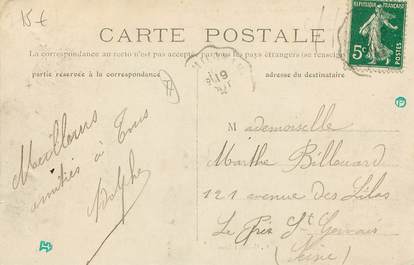 15 €
CARTE POSTALE
RÉPUBLIQUE FRANÇAISE
5c
POSTES
La correspondance au recto n'est pas acceptée par tous les pays étrangers (se renseigner
partie réservée à la correspondance
adresse du destinataire
19
Meilleures
amitiés à tous
Mademoiselle
Marthe Billouard
121 avenue des Lilas
Le Pré St Gervais
(Seine)